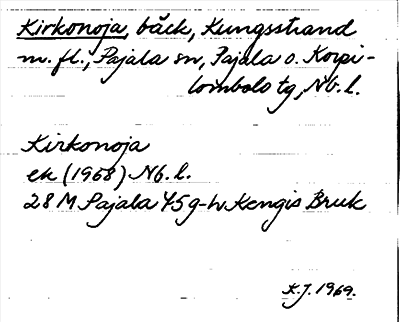 Kirkonoja, bäck, Kungsstrand
m. fl., Pajala sn, Pajala o. Korpi-
lombolo tg, Nb. l.
Kirkonoja
ek (1968) Nb. l.
28 M Pajala 45g-h Kengis Bruk
K.J. 1969.